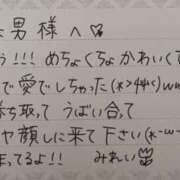 男様へ♡
う!!! めちょくちょかわいくて
で愛でしちゃった(*>艸<)ww
勝ち取って うばい合って
ヤ顔しに来て下さい(*-w-
ってるよ!! みれい